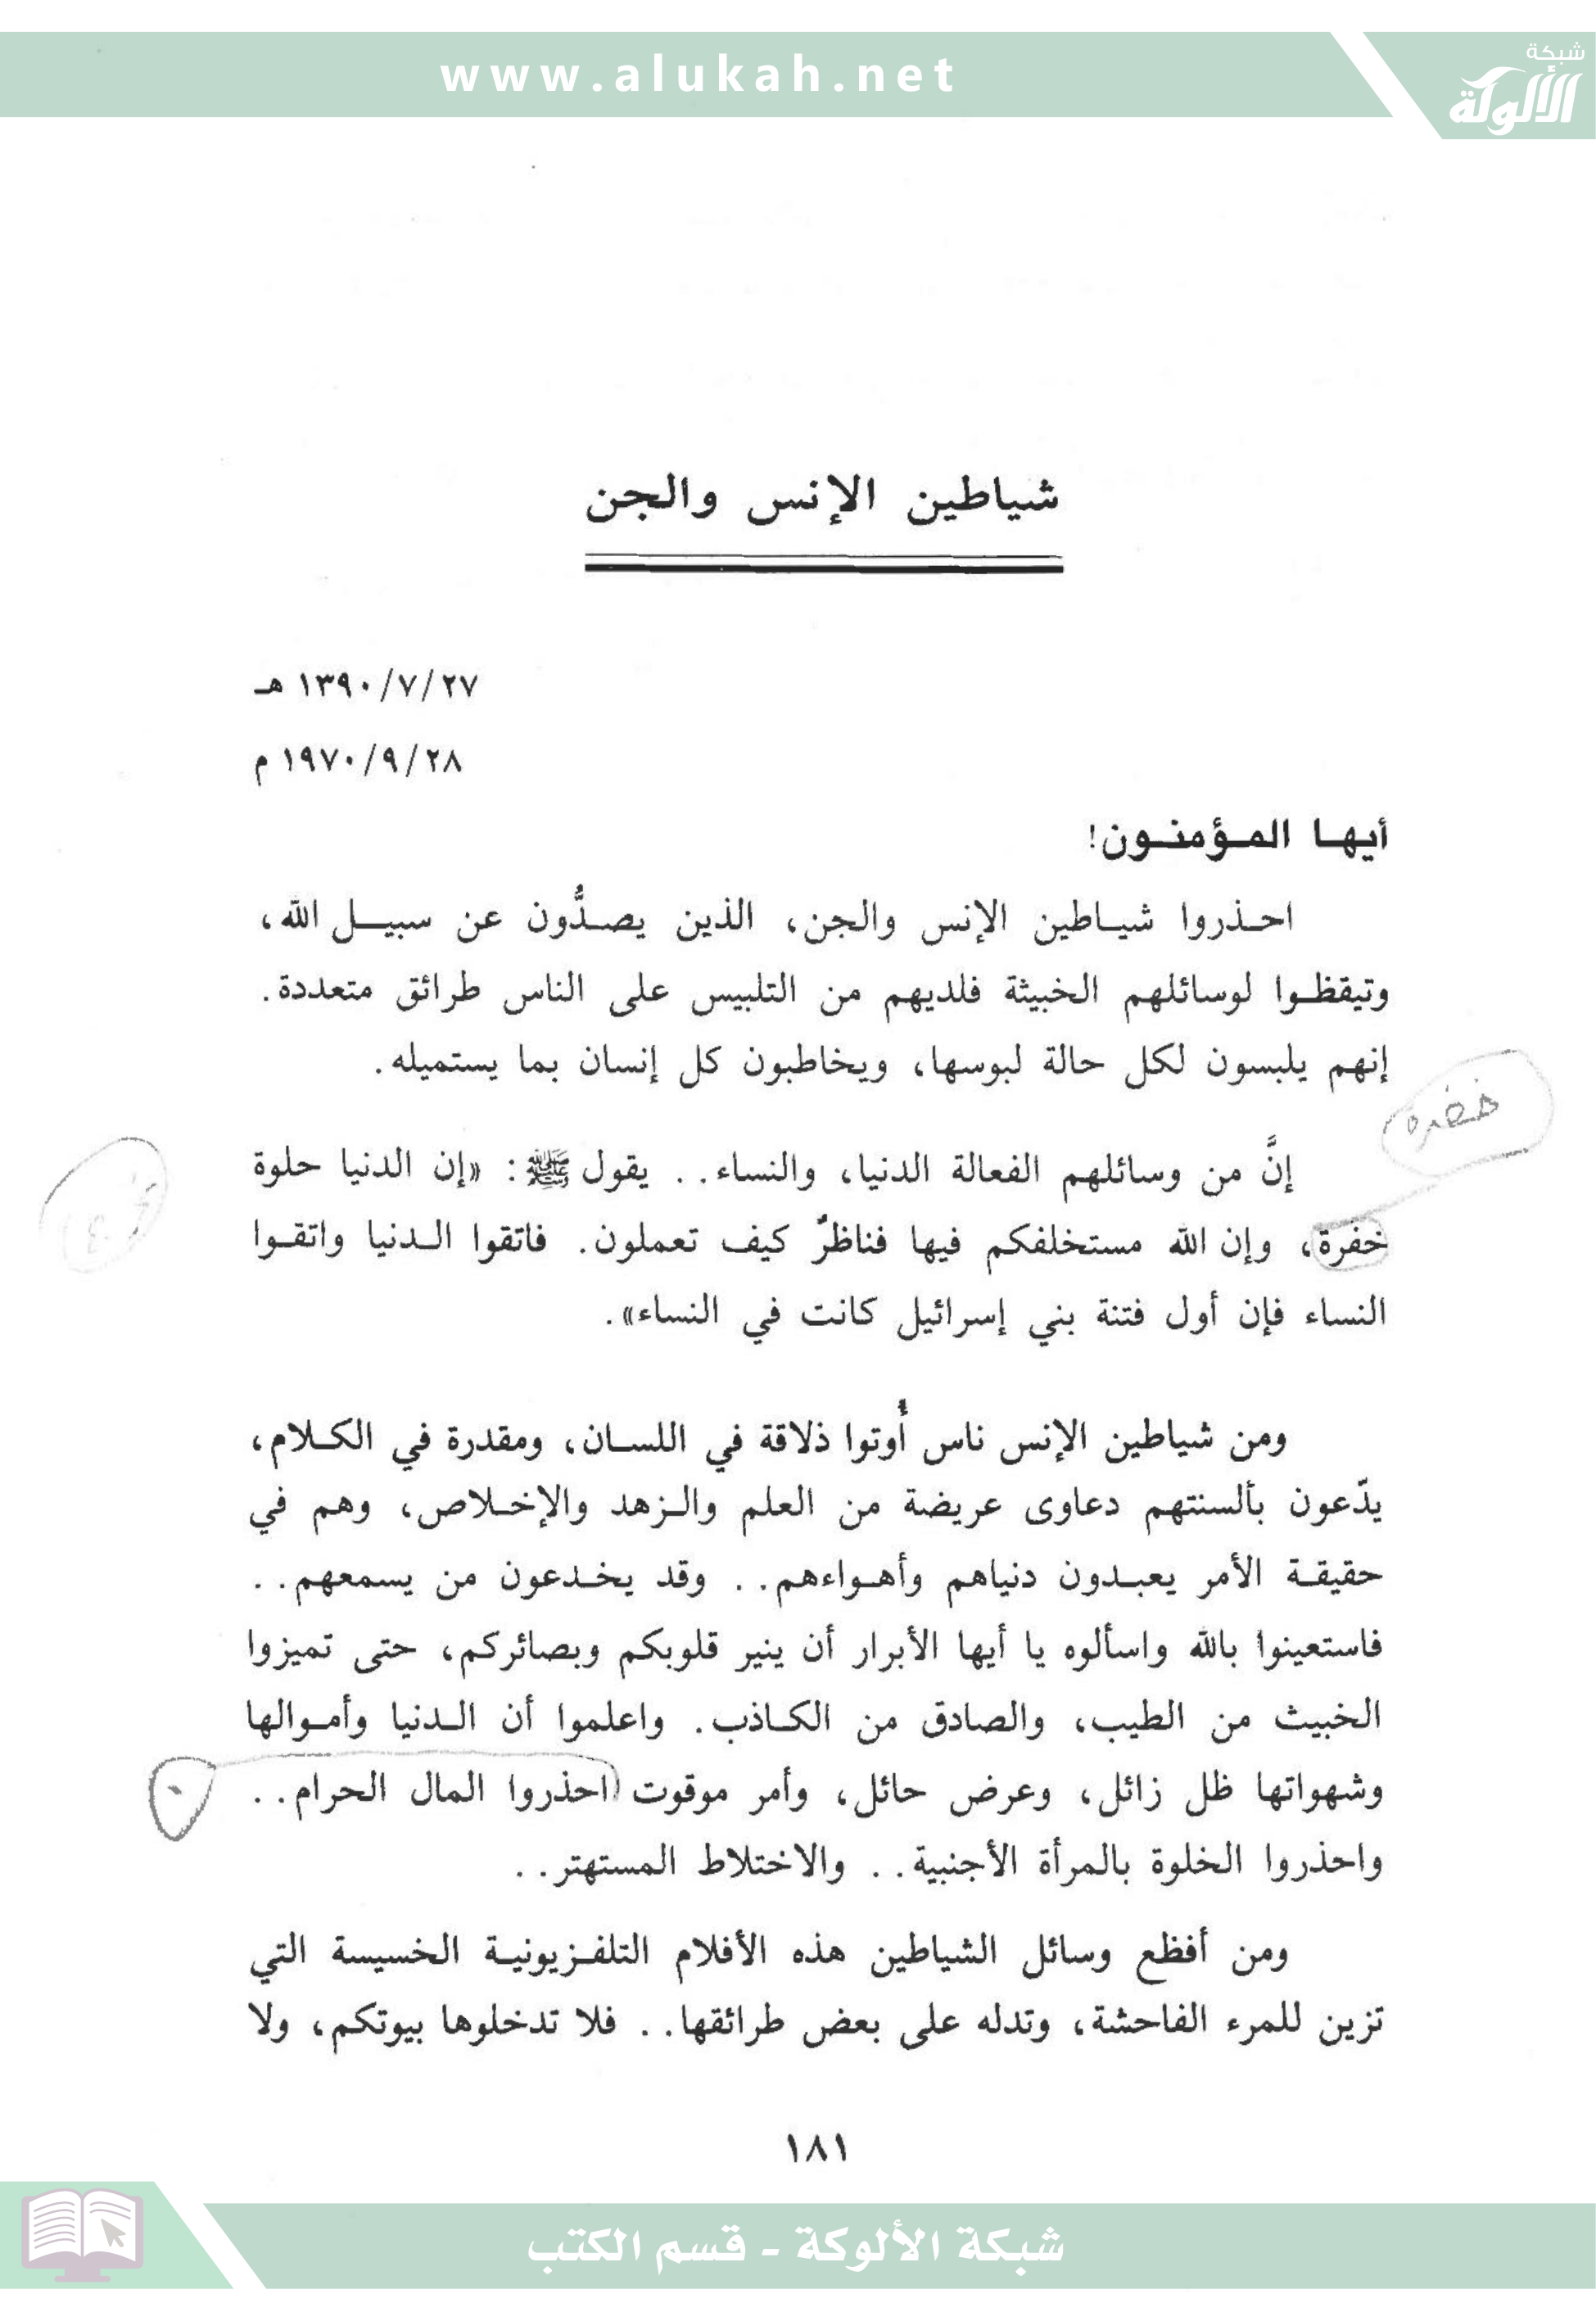 www.alukah.net
شبكة
الألوكة
شياطين الإنس والجن
١٣٩٠/٧/٢٧ هـ
١٩٧٠/٩/٢٨ م
أيها المؤمنون!
احذروا شياطين الإنس والجن، الذين يصدُّون عن سبيل الله،
وتيقظوا لوسائلهم الخبيثة فلديهم من التلبيس على الناس طرائق متعددة.
إنهم يلبسون لكل حالة لبوسها، ويخاطبون كل إنسان بما يستميله.
خضره
إنَّ من وسائلهم الفعالة الدنيا، والنساء.. يقول ﷺ: «إن الدنيا حلوة
خفرة، وإن الله مستخلفكم فيها فناظرٌ كيف تعملون. فاتقوا الدنيا واتقوا
النساء فإن أول فتنة بني إسرائيل كانت في النساء».
ومن شياطين الإنس ناس أُوتوا ذلاقة في اللسان، ومقدرة في الكلام،
يدّعون بألسنتهم دعاوى عريضة من العلم والزهد والإخلاص، وهم في
حقيقة الأمر يعبدون دنياهم وأهواءهم.. وقد يخدعون من يسمعهم..
فاستعينوا بالله واسألوه يا أيها الأبرار أن ينير قلوبكم وبصائركم، حتى تميزوا
الخبيث من الطيب، والصادق من الكاذب. واعلموا أن الدنيا وأموالها
وشهواتها ظل زائل، وعرض حائل، وأمر موقوت احذروا المال الحرام..
واحذروا الخلوة بالمرأة الأجنبية.. والاختلاط المستهتر..
ومن أفظع وسائل الشياطين هذه الأفلام التلفزيونية الخسيسة التي
تزين للمرء الفاحشة، وتدله على بعض طرائقها.. فلا تدخلوها بيوتكم، ولا
١٨١
شبكة الألوكة - قسم الكتب